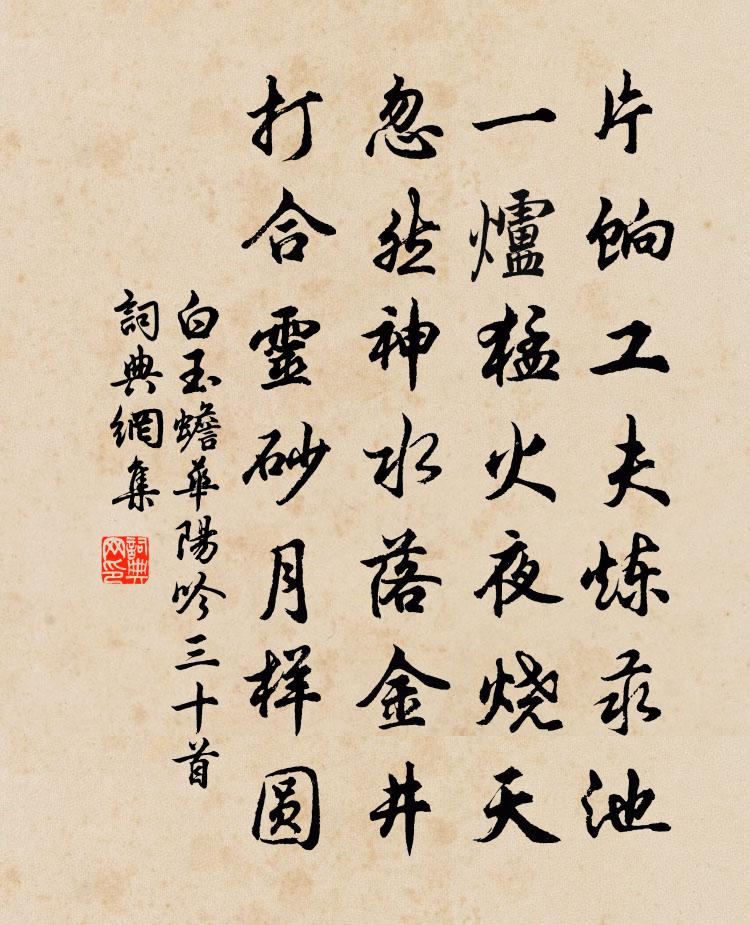 片餉工夫炼汞池
一爐猛火夜烧天
忽然神水落金井
打合靈砂月样圆
白玉蟾華陽吟三十首
詞典網集
詞典
网印